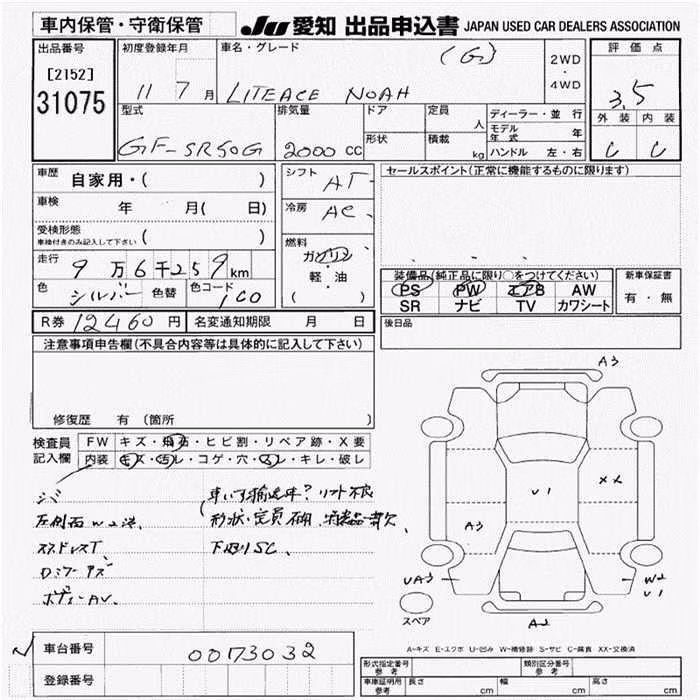 車内保管・守衛保管
JU 愛知 出品申込書 JAPAN USED CAR DEALERS ASSOCIATION
出品番号
[2152]
31075
初度登録年月
11 7 月
車名・グレード
LITEACE NOAH (G)
2WD
・
4WD
評価点
3.5
外装 内装
C C
型式
GF-SR50G
排気量
2000 CC
ドア
形状
定員
人
積載
kg
ディーラー・並行
モデル年式 年
ハンドル 左・右
車歴 自家用・( )
車検 年 月( 日)
受検形態
車検付きのみ記入して下さい ( )
走行 9万6千259km
色 シルバー 色替 色コード 1C0
シフト AT
冷房 AC
燃料
ガソリン
・
軽・油
( )
セールスポイント(正常に機能するものに限ります)
装備品(純正品に限り○をつけてください)
PS PW エアB AW
SR ナビ TV カワシート
新車保証書
有・無
R券 12460 円 名変通知期限 月 日
後日品
注意事項申告欄(不具合内容等は具体的に記入して下さい)
修復歴 有 (箇所 )
検査員
記入欄
FW キズ・飛石・ヒビ割・リペア跡・X要
内装 キズ・汚レ・コゲ・穴・スレ・キレ・破レ
車いす輸送車? リフト不良
左側面W2済、
形状・定員不明、
スタドレスT、
下廻りSC、
ボディーAV、
A3
XX
U1
A3
UA3
W2
U1
A2
スペア
A-キズ E-エクボ U-凹み W-補修跡 S-サビ C-腐食 XX-交換済
車台番号 0073032
登録番号
形式指定番号
参考
類別区分番号
参考
車庫証明用
参考
長さ cm 幅 cm 高さ cm